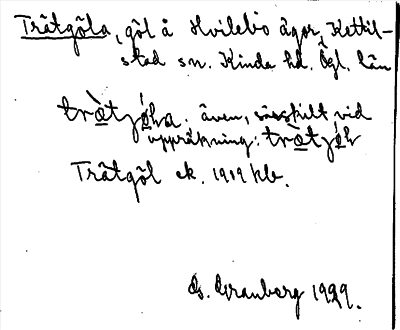 Trätgöla, göl å Hvilebo ägor, Kettil-
stad sn. Kinda hd. Ögl. län
även, särskilt vid
uppräkning:
Trätgöl ek. 1919 hle.
G. Granberg 1929.